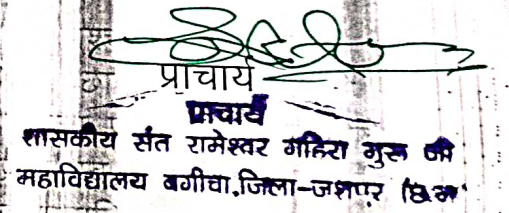 प्राचार्य
प्राचार्य
शासकीय संत रामेश्वर गहिरा गुरू जी
महाविद्यालय बगीचा,जिला-जशपुर (छ.ग.